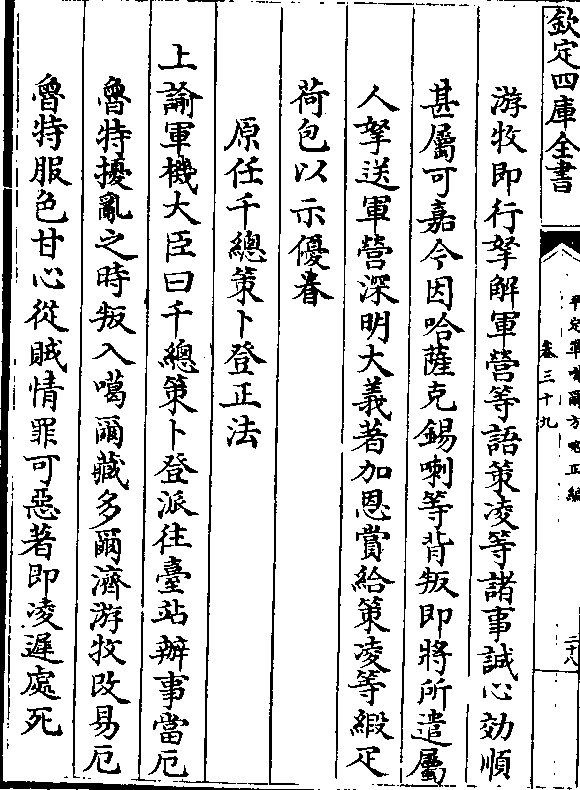 欽定四庫全書
平定準噶爾方略正編
卷三十九
二十八
游牧即行拏解軍營等語策凌等諸事誠心効順
甚屬可嘉今因哈薩克錫喇等背叛即將所遣屬
人拏送軍營深明大義著加恩賞給策凌等緞疋
荷包以示優眷
原任千總策卜登正法
上諭軍機大臣曰千總策卜登派往臺站辦事當厄
魯特擾亂之時叛入噶爾藏多爾濟游牧改易厄
魯特服色甘心從賊情罪可惡著即凌遲處死